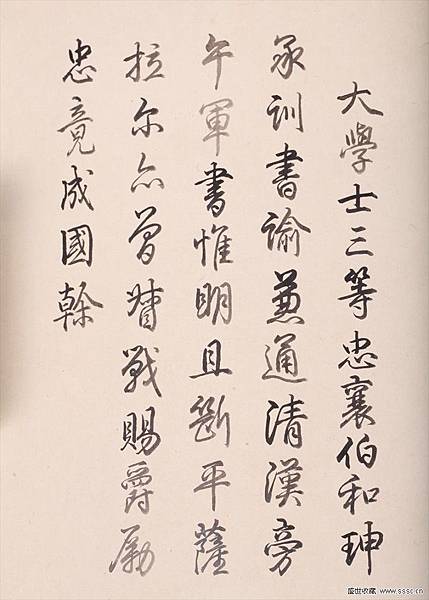 大學士三等忠襄伯和珅
承训書諭兼通清漢旁
午軍書惟明且斷平薩
拉尔亦曾督戰賜爵勵
忠竟成國幹
盛世收藏 www.sssc.cn